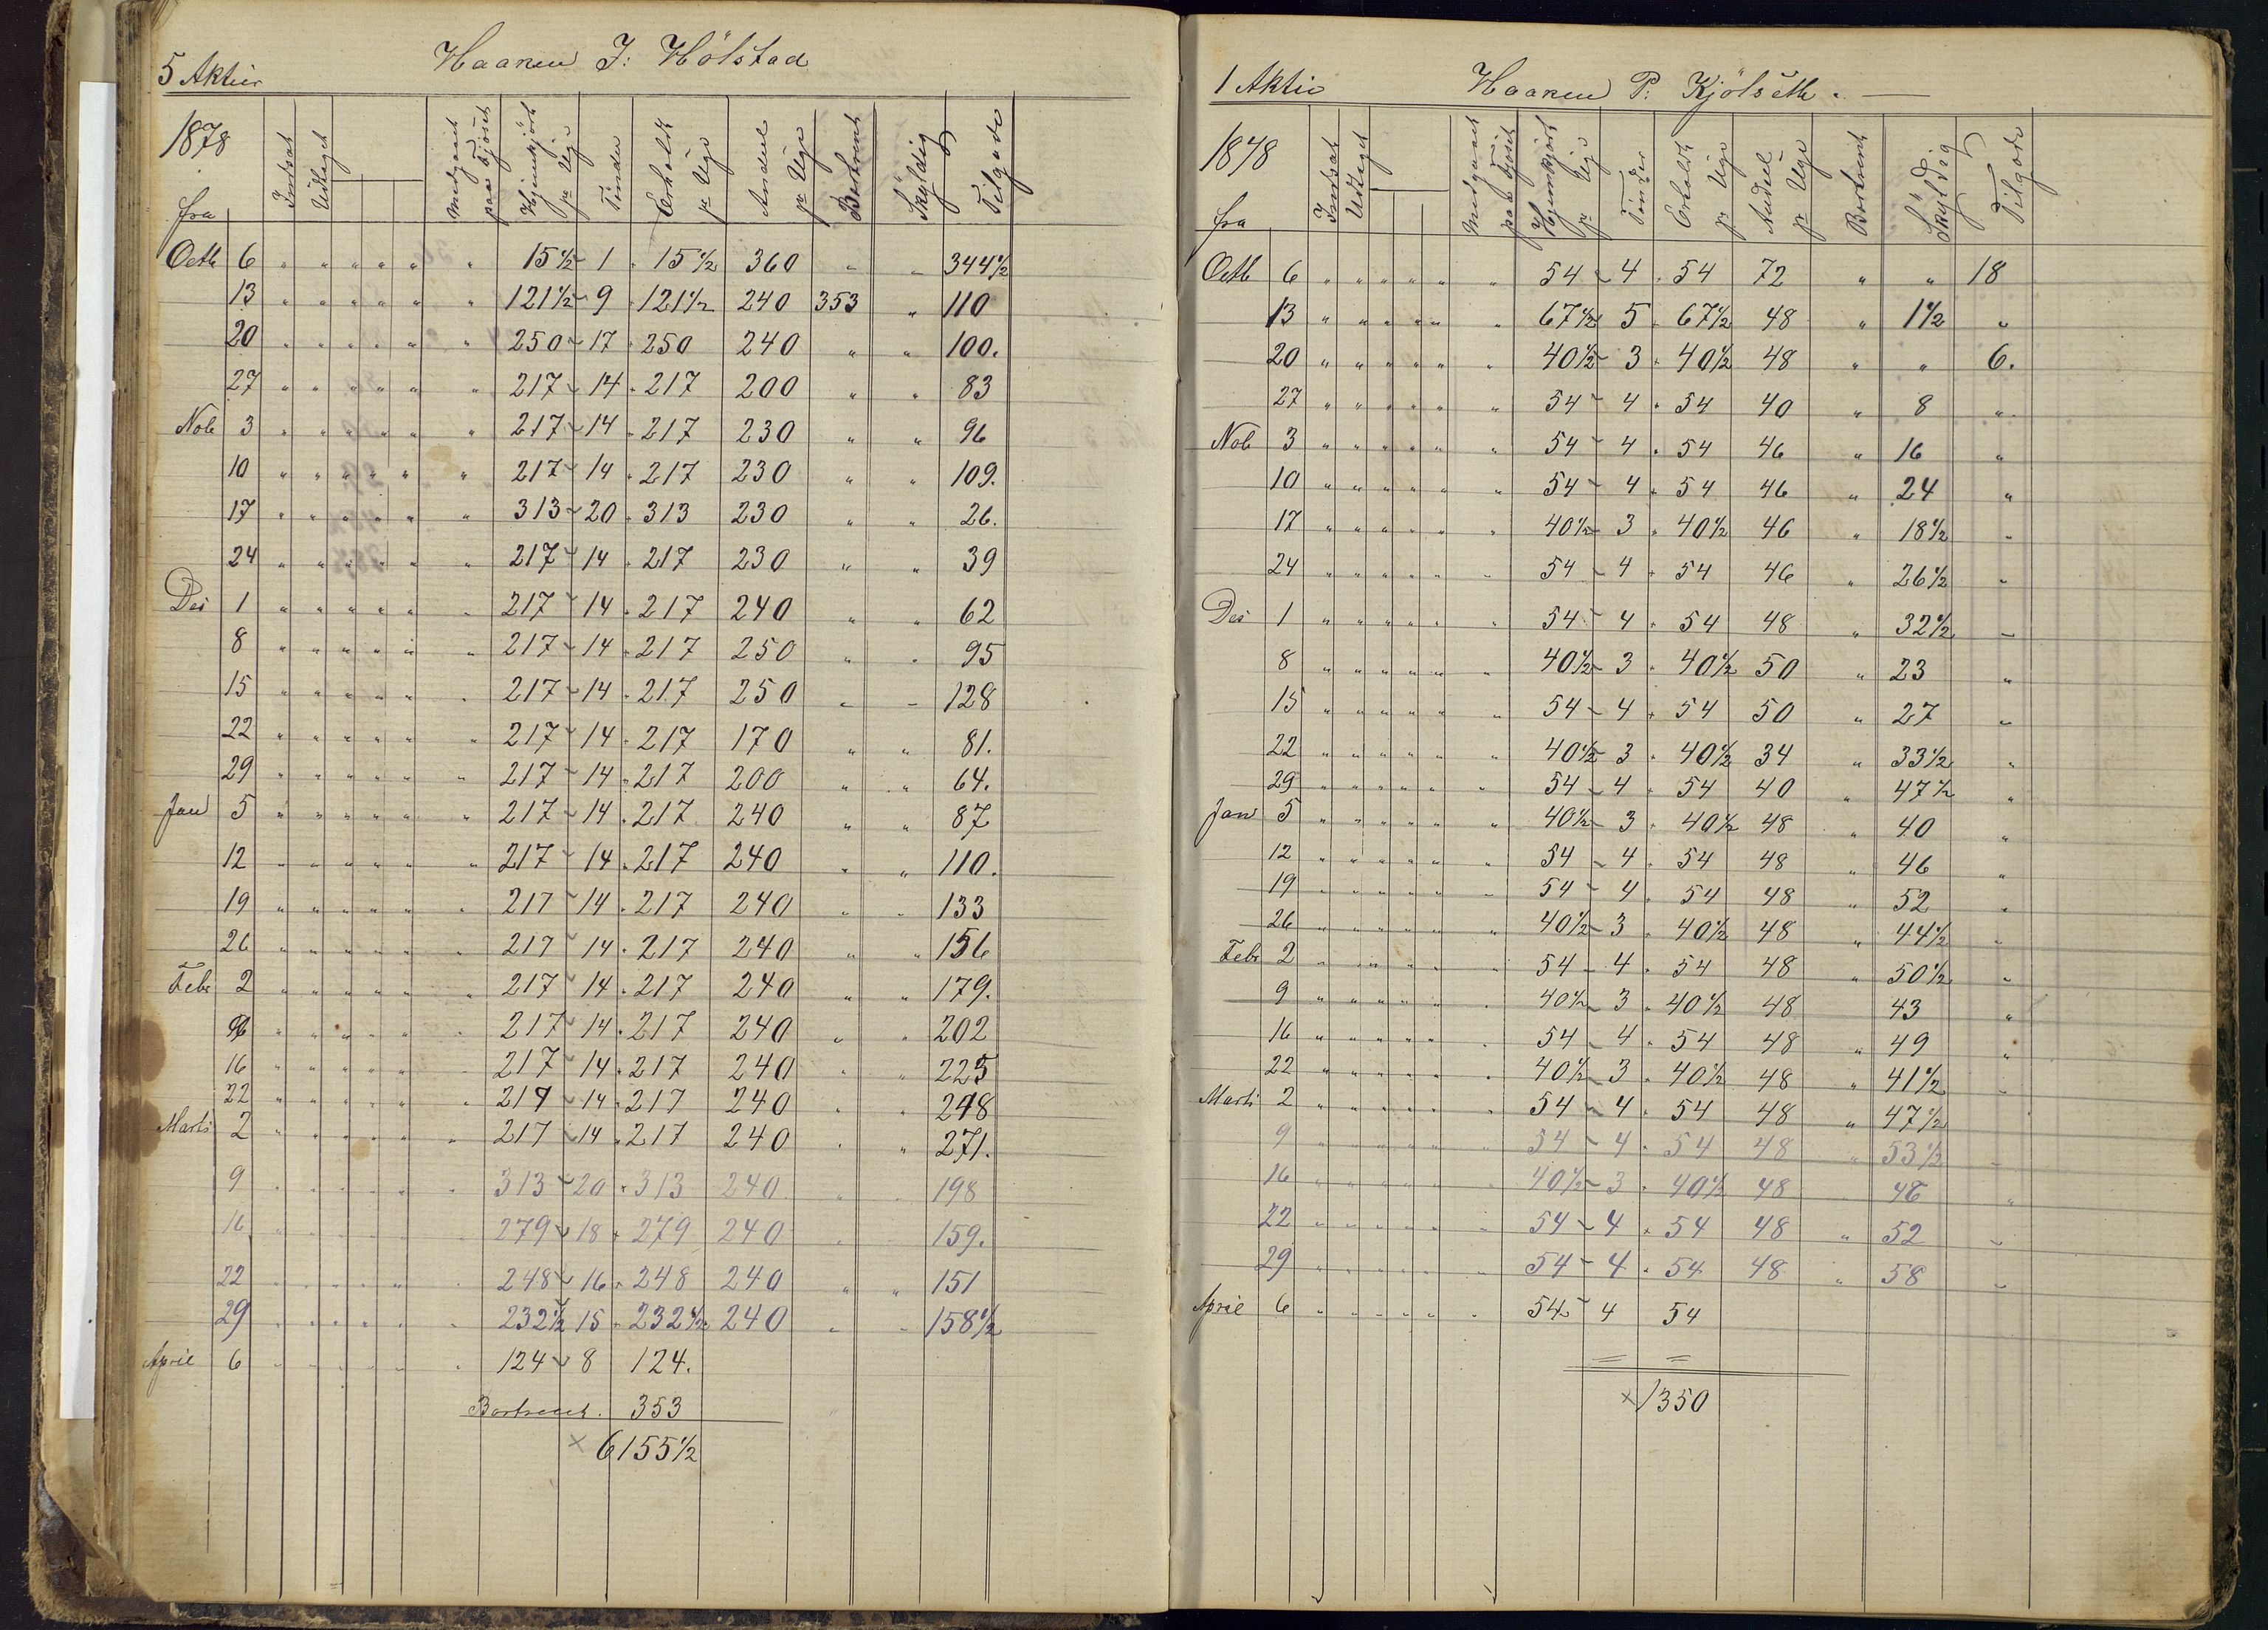 5 Aktier Haaken J: Hölstad
1878 fra Indsat Udtaget Medgaaet paa Fjöset Hjemkjört pr Uge Tönder Erholdt pr Uge Andeel pr Uge Bortrent Skyldig Tilgode
Octb 6 " " " " " " 15 1/2 - 1 " 15 1/2 360 " " 344 1/2
13 " " " " " " 121 1/2 - 9 " 121 1/2 240 353 " 110
20 " " " " " " 250 - 17 " 250 240 " " 100.
27 " " " " " " 217 - 14 " 217 200 " " 83
Nob 3 " " " " " " 217 - 14 " 217 230 " " 96
10 " " " " " " 217 - 14 " 217 230 " " 109.
17 " " " " " " 313 - 20 " 313 230 " " 26.
24 " " " " " " 217 - 14 " 217 230 " " 39
Des 1 " " " " " " 217 - 14 " 217 240 " " 62
8 " " " " " " 217 - 14 " 217 250 " " 95
15 " " " " " " 217 - 14 " 217 250 " " 128
22 " " " " " " 217 - 14 " 217 170 " " 81.
29 " " " " " " 217 - 14 " 217 200 " " 64.
Jan 5 " " " " " " 217 - 14 " 217 240 " " 87
12 " " " " " " 217 - 14 " 217 240 " " 110.
19 " " " " " " 217 - 14 " 217 240 " " 133
26 " " " " " " 217 - 14 " 217 240 " " 156
Febr 2 " " " " " " 217 - 14 " 217 240 " " 179.
9 " " " " " " 217 - 14 " 217 240 " " 202
16 " " " " " " 217 - 14 " 217 240 " " 225
22 " " " " " " 217 - 14 " 217 240 " " 248
Marts 2 " " " " " " 217 - 14 " 217 240 " " 271.
9 " " " " " " 313 - 20 " 313 240 " " 198
16 " " " " " " 279 - 18 " 279 240 " " 159.
22 " " " " " " 248 - 16 " 248 240 " " 151
29 " " " " " " 232 1/2 15 " 232 1/2 240 " " 158 1/2
April 6 " " " " " " 124 - 8 124.
Bortrent. 353
× 6155 1/2
1 Aktie Haaken P: Kjölseth . —
1878 fra Indsat Udtaget Medgaaet paa Fjöset Hjemkjört pr Uge Tönder Erholdt pr Uge Andeel pr Uge Bortrent Skyldig Tilgode
Octb 6 " " " " " " 54 - 4 " 54 72 " " 18
13 " " " " " " 67 1/2 5 " 67 1/2 48 " 1 1/2 "
20 " " " " " " 40 1/2 - 3 " 40 1/2 48 " " 6.
27 " " " " " " 54 - 4 " 54 40 " 8 "
Nob 3 " " " " " " 54 - 4 " 54 46 " 16 "
10 " " " " " " 54 - 4 " 54 46 " 24 "
17 " " " " " " 40 1/2 - 3 " 40 1/2 46 " 18 1/2 "
24 " " " " " " 54 - 4 " 54 46 " 26 1/2 "
Des 1 " " " " " " 54 - 4 " 54 48 " 32 1/2 "
8 " " " " " " 40 1/2 - 3 " 40 1/2 50 " 23 "
15 " " " " " " 54 - 4 " 54 50 " 27 "
22 " " " " " " 40 1/2 - 3 " 40 1/2 34 " 33 1/2 "
29 " " " " " " 54 - 4 " 54 40 " 47 1/2 "
Jan 5 " " " " " " 40 1/2 - 3 " 40 1/2 48 " 40 "
12 " " " " " " 54 - 4 " 54 48 " 46 "
19 " " " " " " 54 - 4 " 54 48 " 52 "
26 " " " " " " 40 1/2 - 3 " 40 1/2 48 " 44 1/2 "
Febr 2 " " " " " " 54 - 4 " 54 48 " 50 1/2 "
9 " " " " " " 40 1/2 - 3 " 40 1/2 48 43 "
16 " " " " " " 54 - 4 " 54 48 " 49 "
22 " " " " " " 40 1/2 - 3 " 40 1/2 48 " 41 1/2 "
Marts 2 " " " " " " 54 - 4 " 54 48 " 47 1/2
9 " " " " " " 54 - 4 " 54 48 " 53 1/2 "
16 " " " " " " 40 1/2 - 3 " 40 1/2 48 " 46 "
22 " " " " " " 54 - 4 " 54 48 " 52 "
29 " " " " " " 54 - 4 " 54 48 " 58 "
April 6 " " " " " " 54 - 4 54
× 1350